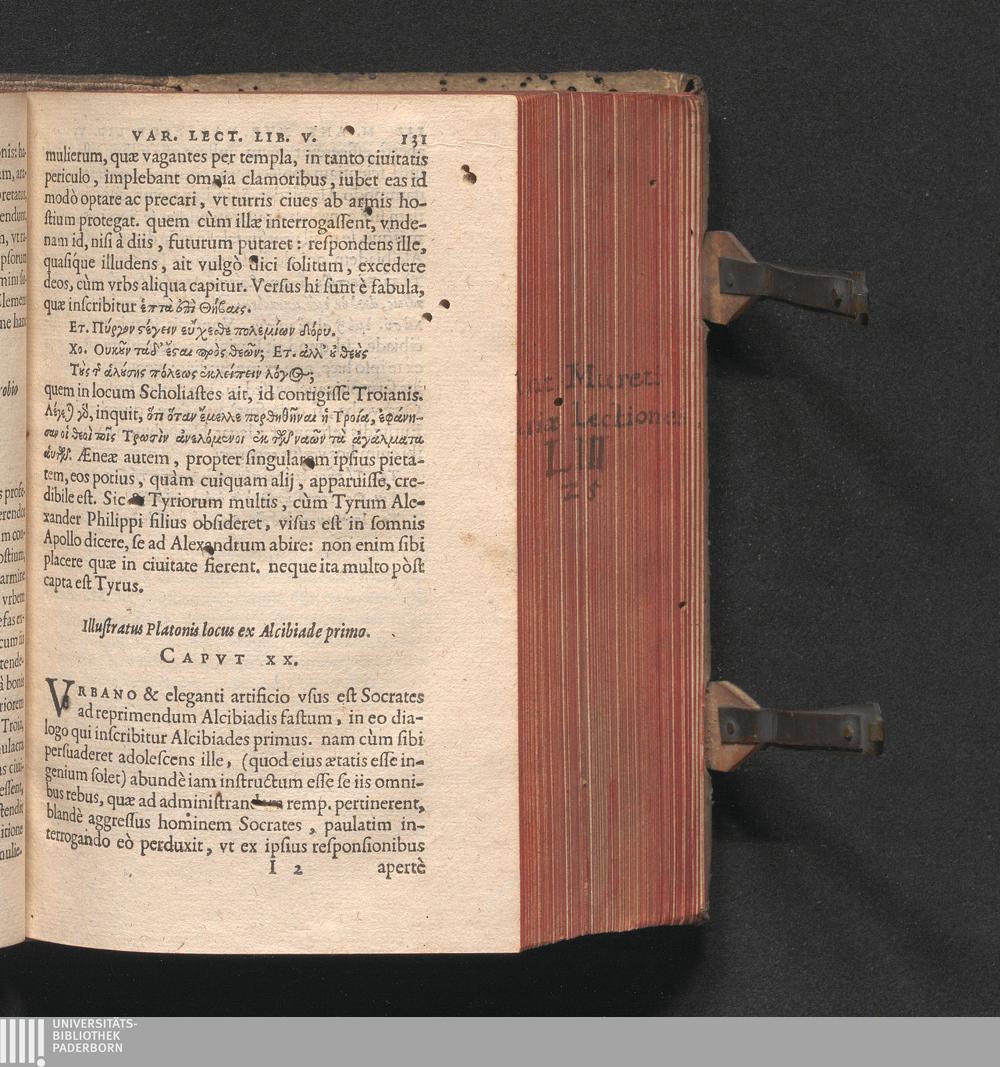 VAR. LECT. LIB. V. 131
mulierum, quæ vagantes per templa, in tanto ciuitatis
periculo, implebant omnia clamoribus, iubet eas id
modò optare ac precari, vt turris ciues ab armis ho-
ſtium protegat. quem cùm illæ interrogaſſent, vnde-
nam id, niſi à diis, futurum putaret: reſpondens ille,
quaſique illudens, ait vulgò dici ſolitum, excedere
deos, cùm vrbs aliqua capitur. Verſus hi ſunt è fabula,
quæ inſcribitur ἑπτὰ ἐπὶ Θήβαις.
Ετ. Πύργον στέγειν εὔχεσθε πολεμίων δόρυ.
Χο. Ουκοῦν τάδ' ἔσαι πρὸς θεῶν; Ετ. ἀλλ' οὖ θεοὺς
Τοὺς τ ἁλούσης πόλεως ἐκλείπειν λόγος;
quem in locum Scholiaſtes ait, id contigiſſe Troianis.
Λέγε) γδ, inquit, ὅτι ὅταν ἔμελλε πορθηθῆναι ἡ Τροία, ἐφάνη-
σαν οἱ θεοὶ τοῖς Τρωσὶν ἀνελόμενοι ἐκ τῶν ναῶν τὰ ἀγάλματα
αὐτῶν. Æneæ autem, propter ſingularem ipſius pieta-
tem, eos potius, quàm cuiquam alij, apparuiſſe, cre-
dibile eſt. Sic & Tyriorum multis, cùm Tyrum Ale-
xander Philippi filius obſideret, viſus eſt in ſomnis
Apollo dicere, ſe ad Alexandrum abire: non enim ſibi
placere quæ in ciuitate fierent. neque ita multo pòſt
capta eſt Tyrus.
Illuſtratus Platonis locus ex Alcibiade primo.
CAPVT XX.
VRBANO & eleganti artificio vſus eſt Socrates
ad reprimendum Alcibiadis faſtum, in eo dia-
logo qui inſcribitur Alcibiades primus. nam cùm ſibi
perſuaderet adoleſcens ille, (quod eius ætatis eſſe in-
genium ſolet) abundè iam inſtructum eſſe ſe iis omni-
bus rebus, quæ ad adminiſtrandam remp. pertinerent,
blandè aggreſſus hominem Socrates, paulatim in-
terrogando eò perduxit, vt ex ipſius reſponſionibus
I 2 apertè
Muret
Lectiones
LIII
25
UNIVERSITÄTS-
BIBLIOTHEK
PADERBORN